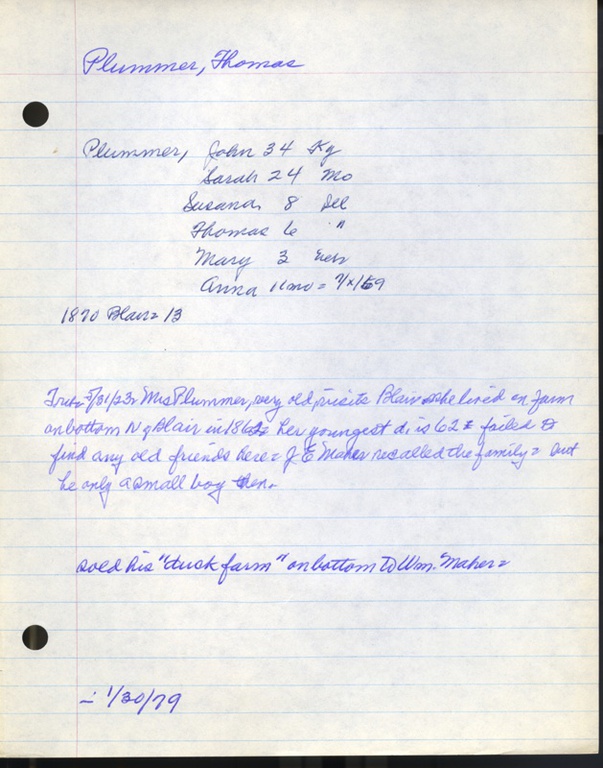 Plummer, Thomas
Plummer, John 34 Ky
Sarah 24 Mo
Susana 8
Thomas 6 "
Mary 3
Anna 11mo =
1870 Blair = 13
Trib 7/31/23: Mrs Plummer, very old, visits Blair she lived on farm
on bottom N of Blair in 1862 = her youngest d. is 62 = failed to
find any old friends here = J E Maher recalled the family = but
he only a small boy then.
sold his "duck farm" on bottom to Wm. Maher =
1/30/79